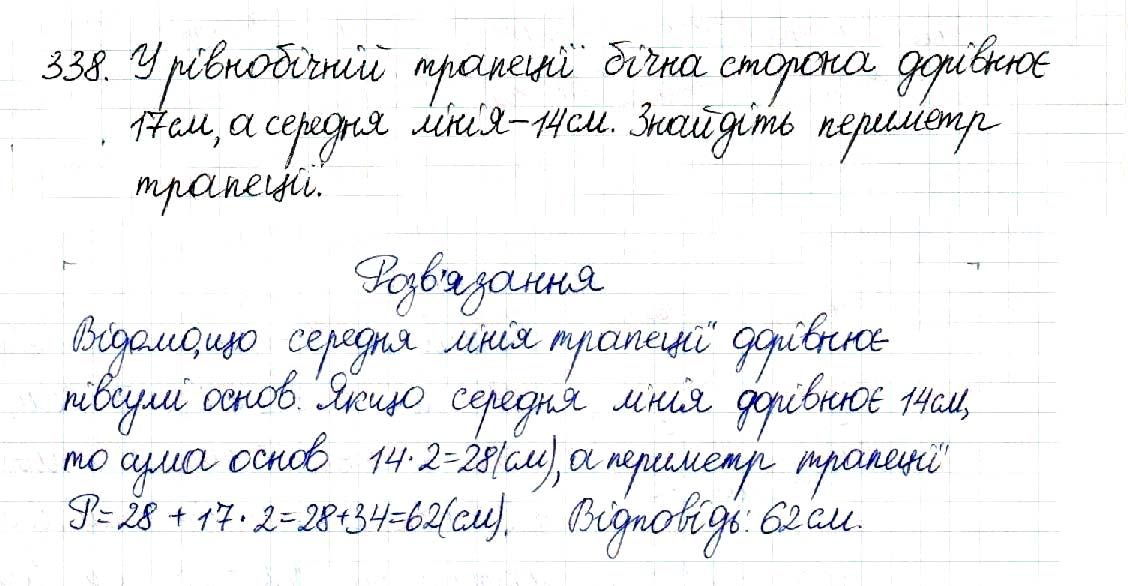 338. У рівнобічній трапеції бічна сторона дорівнює
17см, а середня лінія – 14см. Знайдіть периметр
трапеції.
Розв'язання
Відомо, що середня лінія трапеції дорівнює
півсумі основ. Якщо середня лінія дорівнює 14см,
то сума основ 14·2=28(см), а периметр трапеції
P=28 + 17·2=28+34=62(см). Відповідь: 62см.